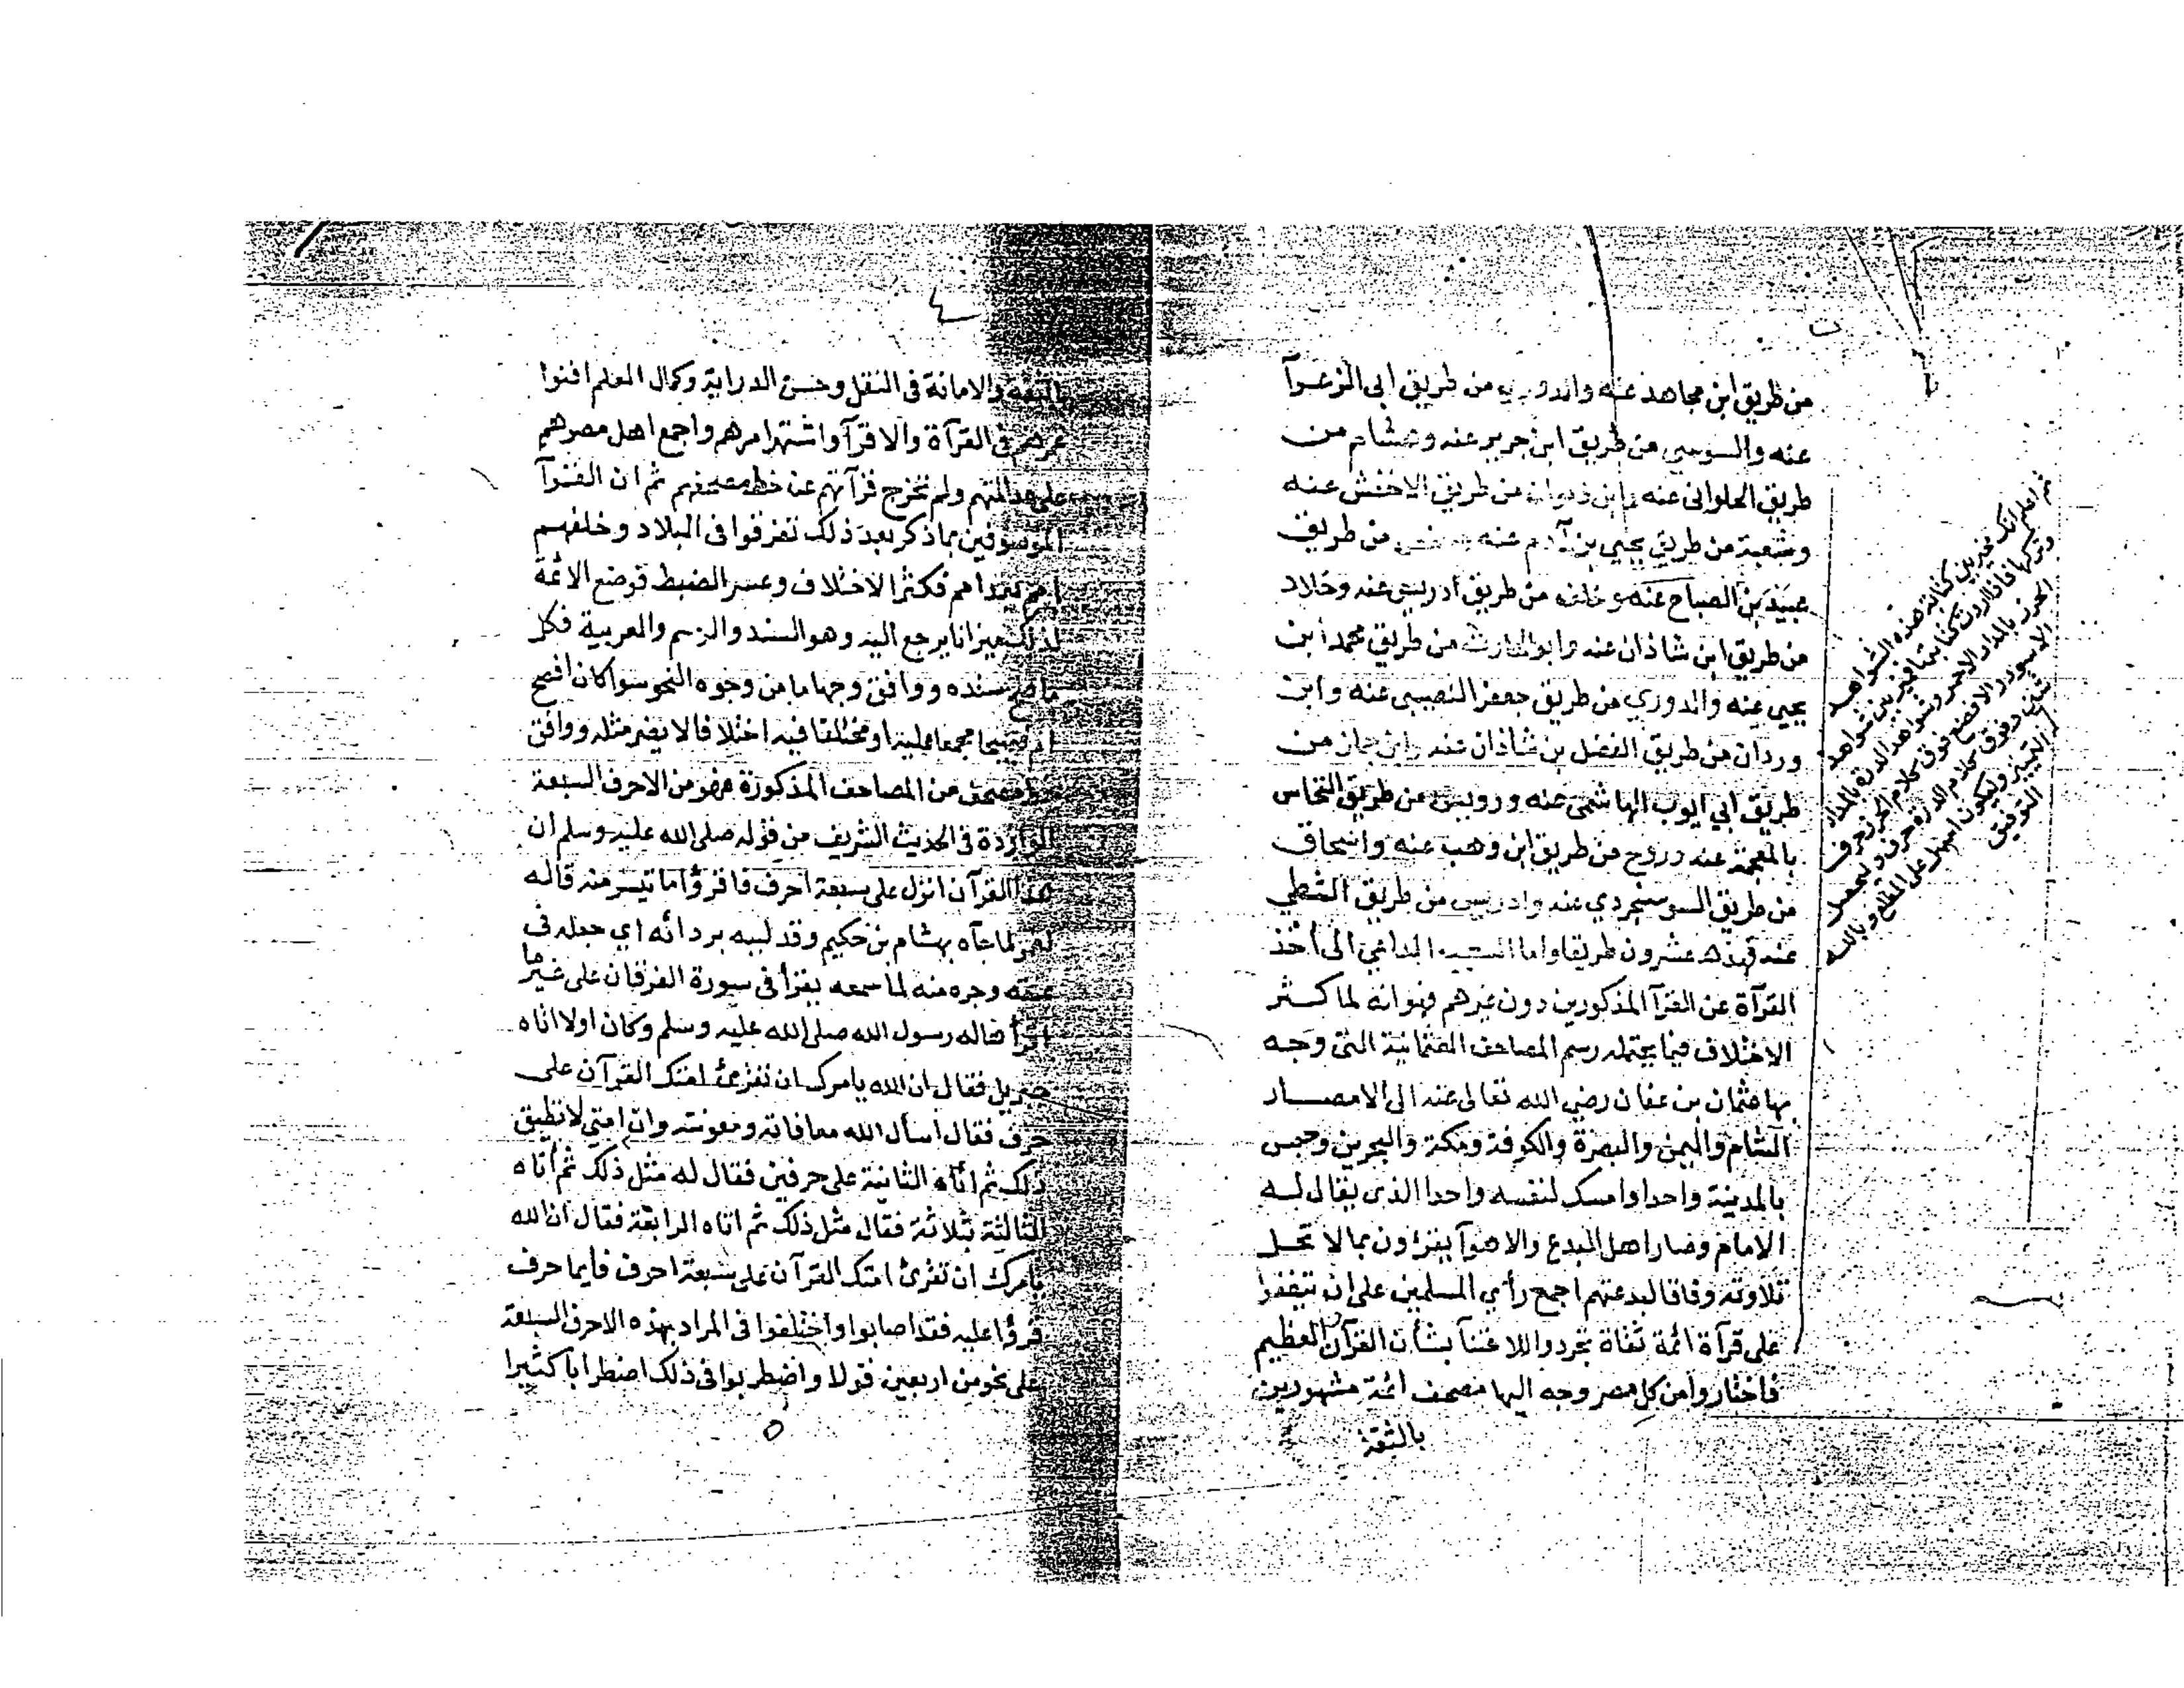 من طريق ابن مجاهد عنه والدوري من طريق ابى الزعرآ
عنه والسوسي من طريق ابن جرير عنه وهشام من
طريق الحلوانى عنه وابن ذكوان من طريق الاخفش عنه
وشعبة من طريق يحيى بن آدم عنه وحفص من طريق
عبيد بن الصباح عنه وخلف من طريق ادريس عنه وخلاد
من طريق ابن شاذان عنه وابو الحارث من طريق محمد ابن
يحيى عنه والدوري من طريق جعفر النصيبى عنه وابن
وردان من طريق الفضل بن شاذان عنه وابن جماز من
طريق ابي ايوب الهاشمى عنه ورويس من طريق النخاس
بالمعجمة عنه وروح من طريق ابن وهب عنه واسحاق
من طريق السوسنجردي عنه وادريس من طريق الشطي
عنه فهذه عشرون طريقا واما السبب الداعي الى اخذ
القرآة عن القرآ المذكورين دون غيرهم فهو انه لما كثر
الاختلاف فيما يحتمله رسم المصاحف العثمانية التى وجه
بها عثمان بن عفان رضي الله تعالى عنه الى الامصار
الشام واليمن والبصرة والكوفة ومكة والبحرين وحبس
بالمدينة واحدا وامسك لنفسه واحدا الذى يقال له
الامام وصار اهل البدع والاهوآ يقرؤن بما لا تحل
تلاوته وفاقا لبدعتهم اجمع رأي المسلمين على ان يتفقوا
على قرآة ائمة ثقاة تجردوا للاعتنآ بشأن القرآن العظيم
فاختاروا من كل مصر وجه اليها مصحف ائمة مشهورين
بالثقة
ثم اعلم انك مخير بين كتابة هذه الشواهد
وتركها فاذا اردت كتابتها فميز بين شواهد
الحرز بالمداد الاحمر وشواهد الدرة بالمداد
الاسود والا فضع فوق كلام الحرز حرف
وفوق كلام الدرة حرف وليحصل
التمييز وليكون اسهل على المطلع وبالله
التوفيق
بالثقة والامانة فى النقل وحسن الدراية وكمال العلم افنوا
عمرهم فى القرآة والاقرآ واشتهر امرهم واجمع اهل مصرهم
على عدالتهم ولم تخرج قرآتهم عن خط مصحفهم ثم ان القرآ
الموصوفين بما ذكر بعد ذلك تفرقوا فى البلاد وخلفهم
امم بعد امم فكثر الاختلاف وعسر الضبط فوضع الائمة
لذلك ميزانا يرجع اليه وهو السند والرسم والعربية فكل
ما صح سنده ووافق وجها ما من وجوه النحو سوا كان افصح
ام فصيحا مجمعا عليه او مختلفا فيه اختلافا لا يضر مثله ووافق
خط مصحف من المصاحف المذكورة فهو من الاحرف السبعة
الواردة فى الحديث الشريف من قوله صلى الله عليه وسلم ان
هذا القرآن انزل على سبعة احرف فاقرؤا ما تيسر منه قاله
لعمر لما جآه بهشام بن حكيم وقد لببه بردائه اي جعله فى
عنقه وجره منه لما سمعه يقرأ فى سورة الفرقان على غير ما
اقرأ هاله رسول الله صلى الله عليه وسلم وكان اولا اتاه
جبريل فقال ان الله يامرك ان تقرئ امتك القرآن على
حرف فقال اسأل الله معافاته ومعونته وان امتى لا تطيق
ذلك ثم اتاه الثانية على حرفين فقال له مثل ذلك ثم أتاه
الثالثة بثلاثة فقال مثل ذلك ثم اتاه الرابعة فقال ان الله
يامرك ان تقرئ امتك القرآن على سبعة احرف فأيما حرف
قرؤا عليه فقد اصابوا واختلفوا فى المراد بهذه الاحرف السبعة
على نحو من اربعين قولا واضطربوا فى ذلك اضطرابا كثيرا